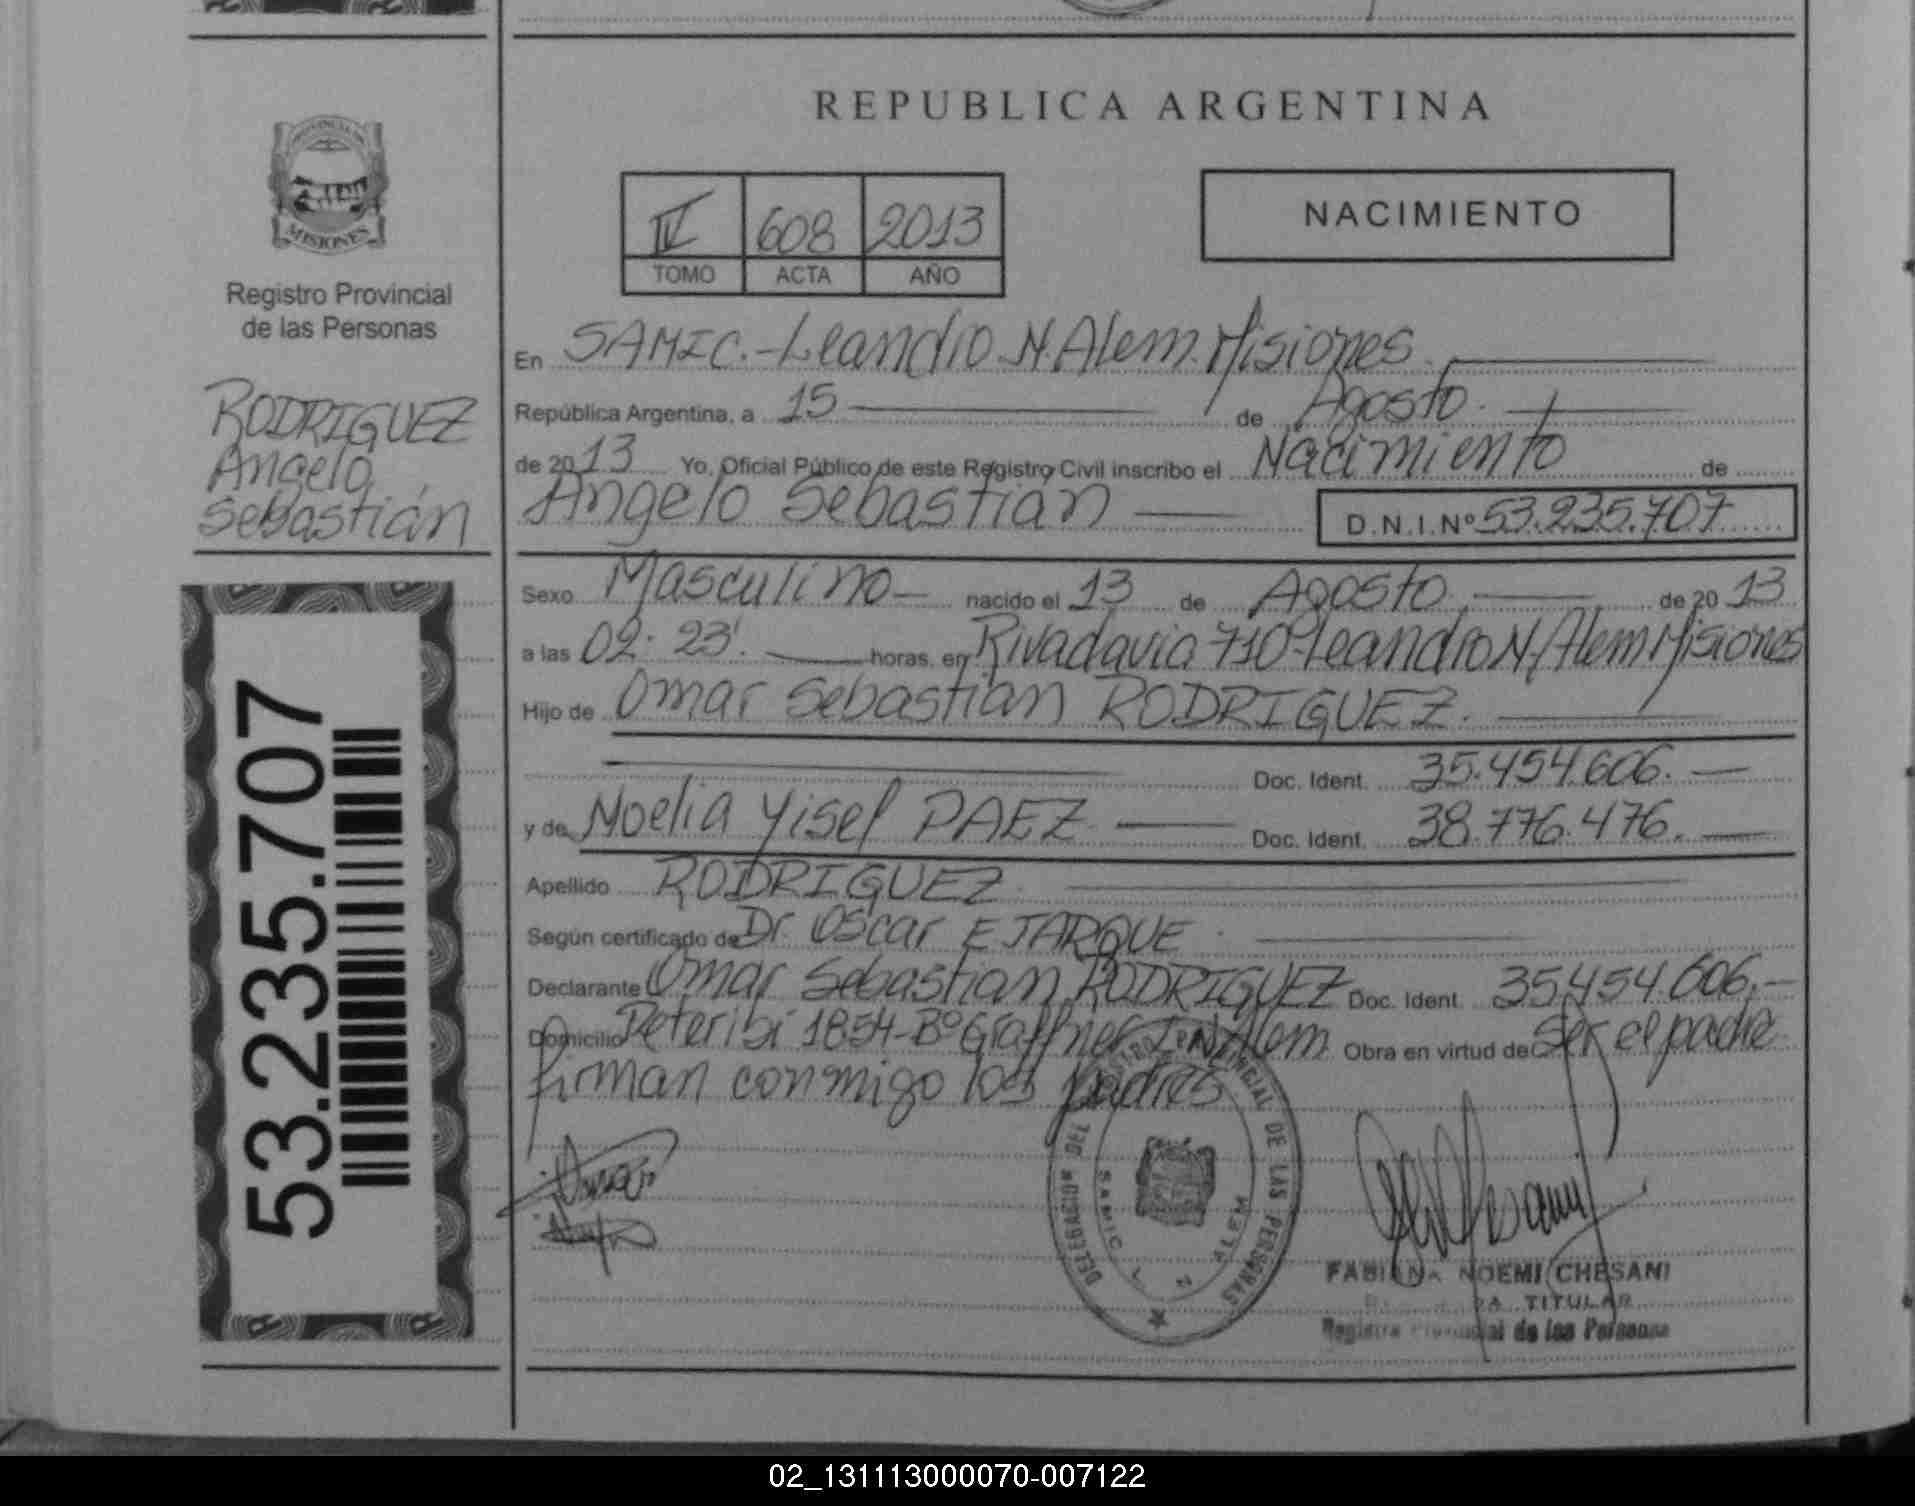 REPUBLICA ARGENTINA
PROVINCIA DE
MISIONES
Registro Provincial
de las Personas
RODRIGUEZ
Angelo
Sebastián
53.235.707
IV 608 2013
TOMO ACTA AÑO
NACIMIENTO
En SAMIC.-Leandro N. Alem. Misiones.
República Argentina, a 15 de Agosto.
de 2013 Yo, Oficial Público de este Registro Civil inscribo el Nacimiento de
Angelo Sebastián D.N.I.Nº 53.235.707
Sexo Masculino nacido el 13 de Agosto de 2013
a las 02:23'. horas, en Rivadavia 710-Leandro N. Alem Misiones
Hijo de Omar Sebastian RODRIGUEZ.
Doc. Ident. 35.454.606.
y de Noelia Yisel PAEZ Doc. Ident. 38.776.476.
Apellido RODRIGUEZ
Según certificado de Dr. Oscar EJARQUE.
Declarante Omar Sebastian RODRIGUEZ Doc. Ident. 35.454.606.-
Domicilio Peteribí 1854-Bº Graffner L.N. Alem Obra en virtud de Ser el padre
firman conmigo los padres
DELEGACION DEL REGISTRO PROVINCIAL DE LAS PERSONAS
SAMIC L N ALEM
FABIANA NOEMI CHESANI
TITULAR
Registro Provincial de las Personas
02_131113000070-007122